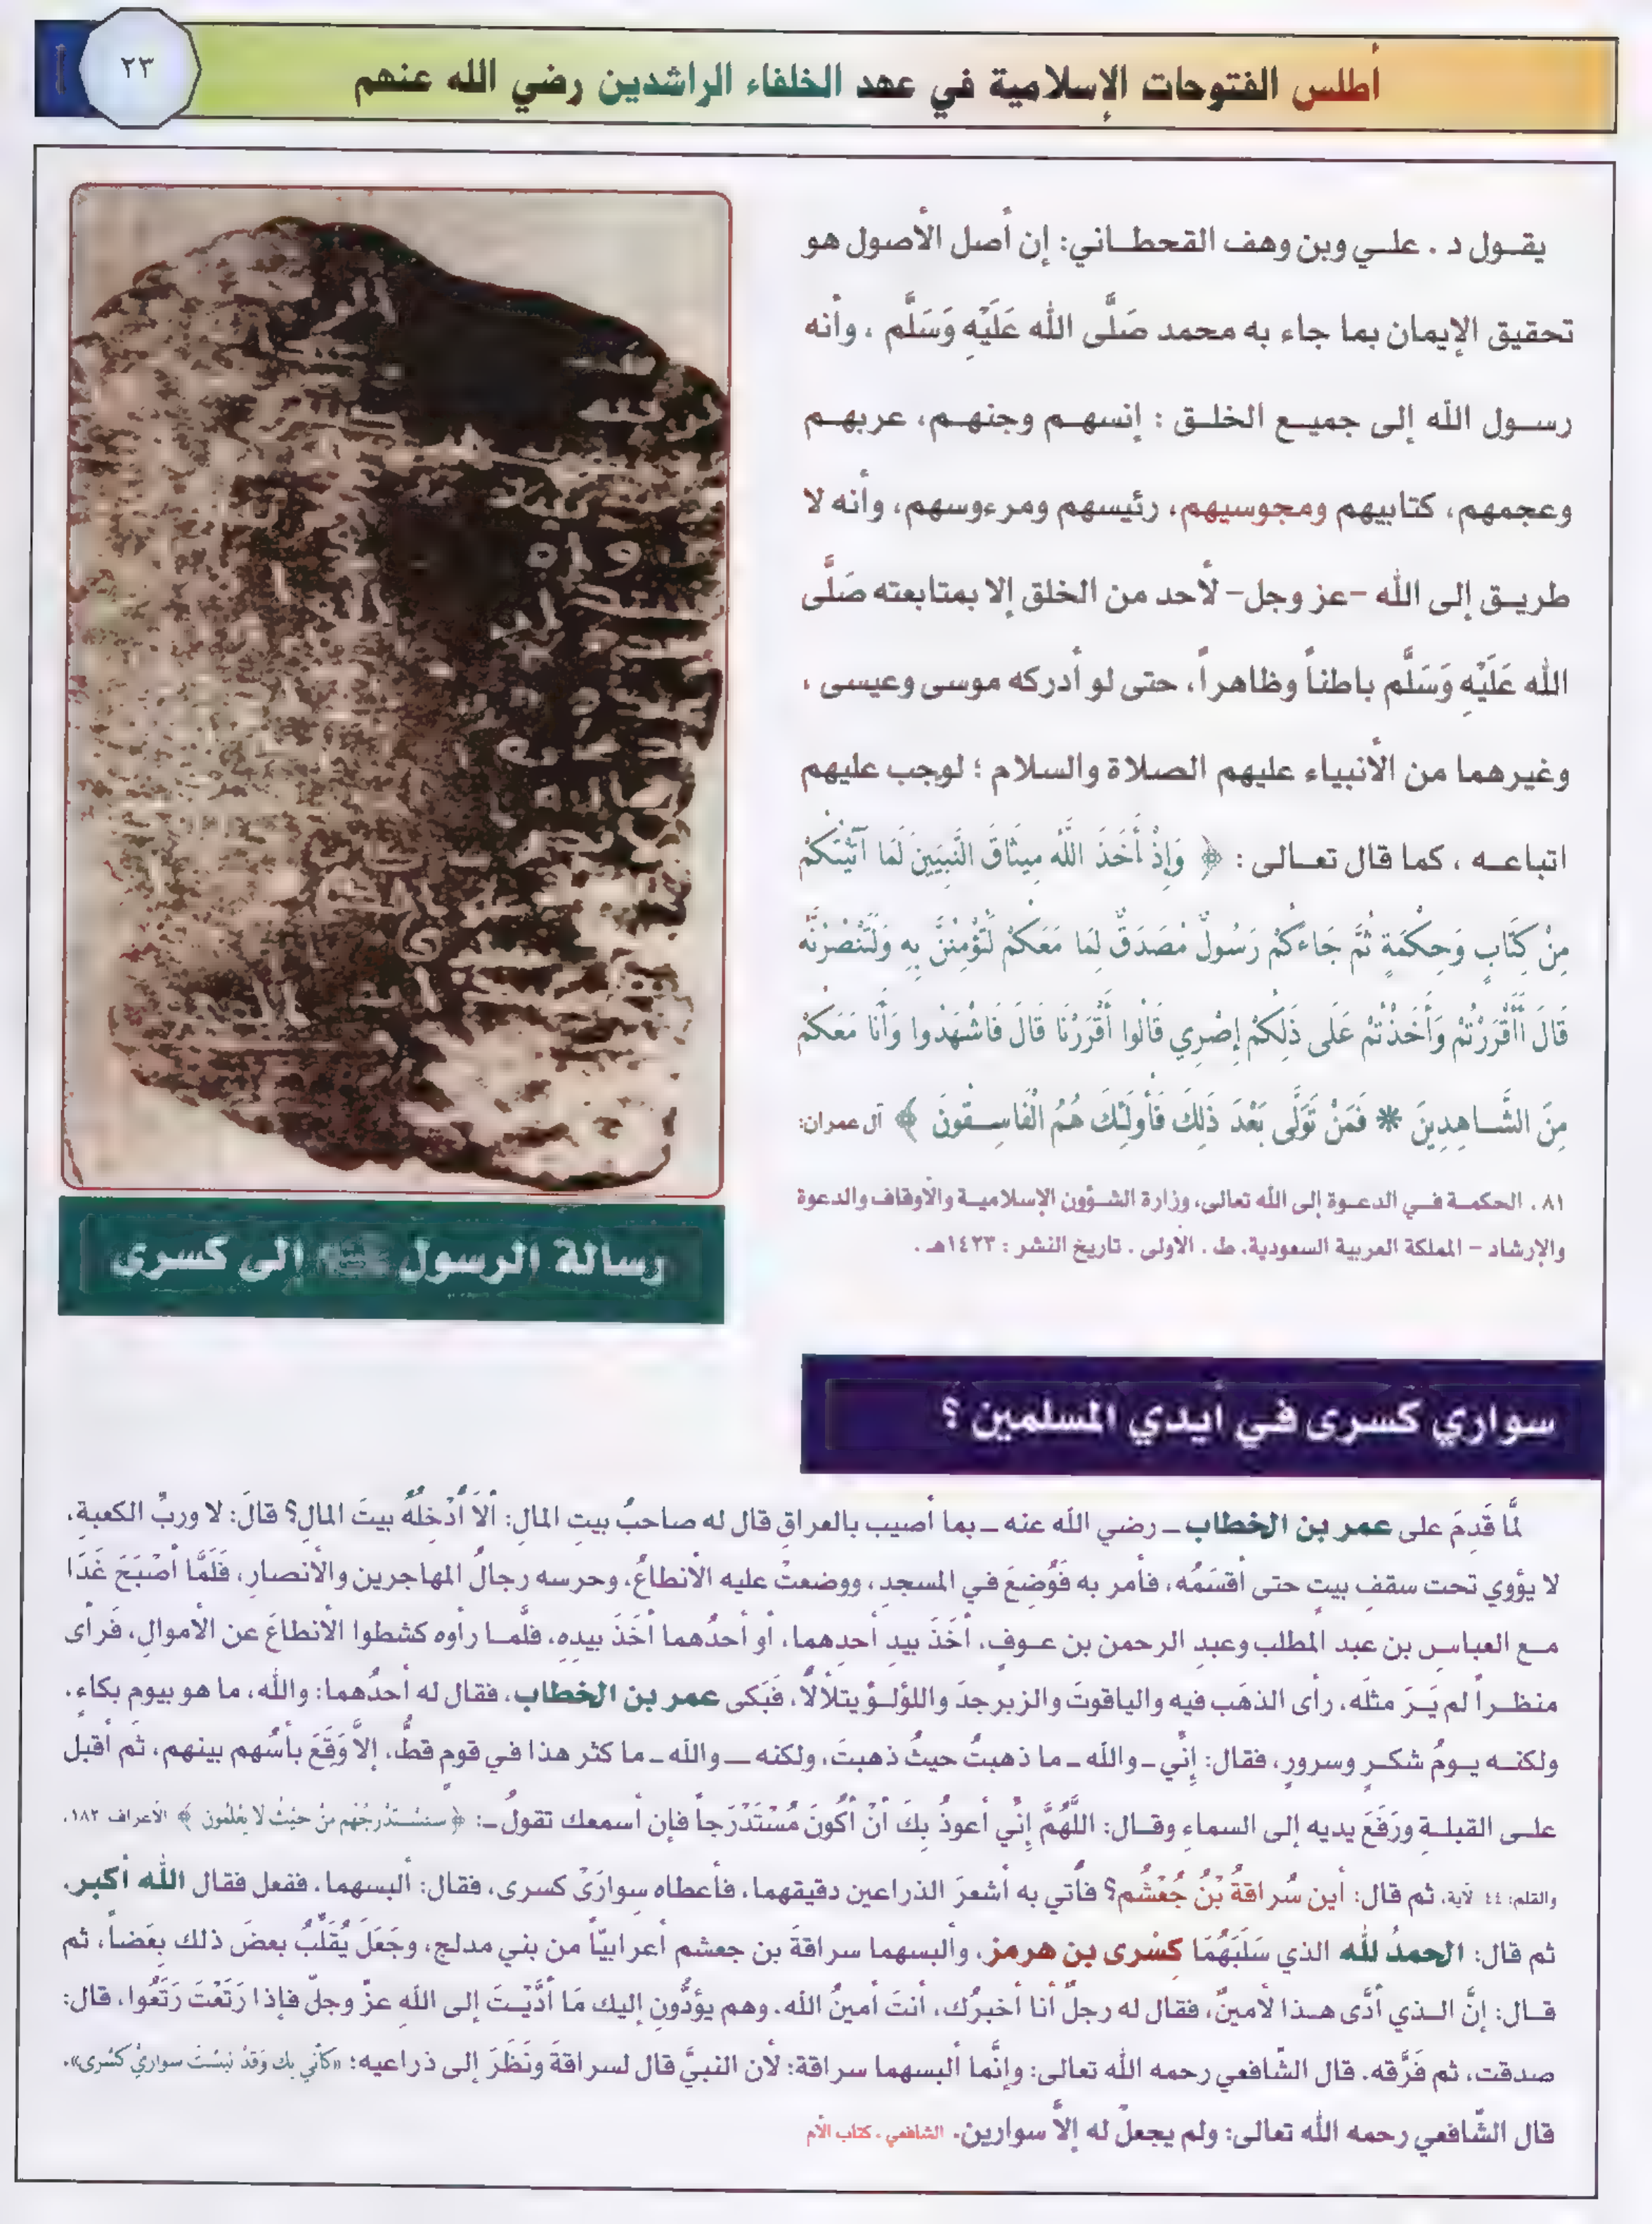 أطلس الفتوحات الإسلامية في عهد الخلفاء الراشدين رضي الله عنهم
٢٣
يقول د . علي وبن وهف القحطاني: إن أصل الأصول هو
تحقيق الإيمان بما جاء به محمد صَلَّى الله عَلَيْهِ وَسَلَّم ، وأنه
رسول الله إلى جميع الخلق : إنسهم وجنهم، عربهم
وعجمهم، كتابيهم ومجوسيهم، رئيسهم ومرءوسهم، وأنه لا
طريق إلى الله -عز وجل- لأحد من الخلق إلا بمتابعته صَلَّى
الله عَلَيْهِ وَسَلَّم باطناً وظاهراً، حتى لو أدركه موسى وعيسى ،
وغيرهما من الأنبياء عليهم الصلاة والسلام ؛ لوجب عليهم
اتباعه ، كما قال تعالى : ﴿ وَإِذْ أَخَذَ اللَّهُ مِيثَاقَ النَّبِيِّينَ لَمَا آتَيْتُكُمْ
مِنْ كِتَابٍ وَحِكْمَةٍ ثُمَّ جَاءَكُمْ رَسُولٌ مُصَدِّقٌ لِمَا مَعَكُمْ لَتُؤْمِنُنَّ بِهِ وَلَتَنْصُرُنَّهُ
قَالَ أَأَقْرَرْتُمْ وَأَخَذْتُمْ عَلَى ذَلِكُمْ إِصْرِي قَالُوا أَقْرَرْنَا قَالَ فَاشْهَدُوا وَأَنَا مَعَكُمْ
مِنَ الشَّاهِدِينَ * فَمَنْ تَوَلَّى بَعْدَ ذَلِكَ فَأُولَئِكَ هُمُ الْفَاسِقُونَ ﴾ آل عمران:
٨١ . الحكمة في الدعوة إلى الله تعالى، وزارة الشؤون الإسلامية والأوقاف والدعوة
والإرشاد – المملكة العربية السعودية، ط . الأولى . تاريخ النشر : ١٤٢٣هـ .
رسالة الرسول ﷺ إلى كسرى
سواري كسرى في أيدي المسلمين ؟
لمَّا قَدِمَ على عمر بن الخطاب ـ رضي الله عنه ـ بما أصيب بالعراقِ قال له صاحبُ بيتِ المالِ: ألاَ أُدْخِلُهُ بيتَ المالِ؟ قالَ: لا وربِّ الكعبةِ،
لا يؤوي تحت سقفِ بيتٍ حتى أقسَمُه، فأمر به فَوُضِعَ في المسجدِ، ووضعتْ عليه الأنطاعُ، وحرسه رجالُ المهاجرين والأنصارِ، فَلَمَّا أصْبَحَ غَدَا
مع العباس بن عبد المطلب وعبدِ الرحمن بن عوفٍ، أخَذَ بيدِ أحدِهما، أو أحدُهما أخَذَ بيدِهِ، فلَّما رأوه كشطوا الأنطاعَ عن الأموالِ، فَرأى
منظراً لم يَرَ مثلَه، رأى الذهَب فيه والياقوتَ والزبرجدَ واللؤلؤَ يتلألأ، فَبَكى عمر بن الخطاب، فقال له أحدُهما: والله، ما هو بيوم بكاءٍ،
ولكنه يومُ شكرٍ وسرورٍ، فقال: إنِّي ـ والله ـ ما ذهبتُ حيثُ ذهبتَ، ولكنه ـ والله ـ ما كثر هذا في قومٍ قطُّ، إلاَّ وَقَعَ بأسُهم بينهم، ثم أقبل
على القبلةِ ورَفَعَ يديه إلى السماءِ وقال: اللَّهُمَّ إنِّي أعوذُ بكَ أنْ أكُونَ مُسْتَدْرَجاً فإن أسمعك تقولُ ـ: ﴿ سَنَسْتَدْرِجُهُم مِّنْ حَيْثُ لَا يَعْلَمُونَ ﴾ الأعراف ١٨٢،
والقلم: ٤٤ لآية، ثم قال: أين سُراقةُ بْنُ جُعْشُم؟ فأُتي به أشعرَ الذراعين دقيقهما، فأعطاه سِوارَيْ كسرى، فقال: ألبسهما، ففعل فقال الله أكبر،
ثم قال: الحمدُ لله الذي سَلَبَهُمَا كِسْرى بن هرمز، وألبسهما سراقةَ بن جعشم أعرابيّاً من بني مدلج، وجَعَلَ يُقَلِّبُ بعضَ ذلك بعَضاً، ثم
قال: إنَّ الذي أدَّى هذا لأمينٌ، فقال له رجلٌ أنا أخبرُك، أنتَ أمينُ الله، وهم يؤدُّون إليك مَا أدَّيْتَ إلى اللهِ عزَّ وجلَّ فإذا رَتَعْتَ رَتَعُوا، قال:
صدقت، ثم فَرَّقه. قال الشَّافعي رحمه الله تعالى: وإنَّما ألبسهما سراقة؛ لأن النبيَّ قال لسراقةَ ونَظَرَ إلى ذراعيه؛ «كَأنِّي بك وَقَدْ لَبِسْتَ سواريْ كسْرى»،
قال الشَّافعي رحمه الله تعالى: ولم يجعلْ له إلاَّ سوارين. الشافعي ، كتاب الأم